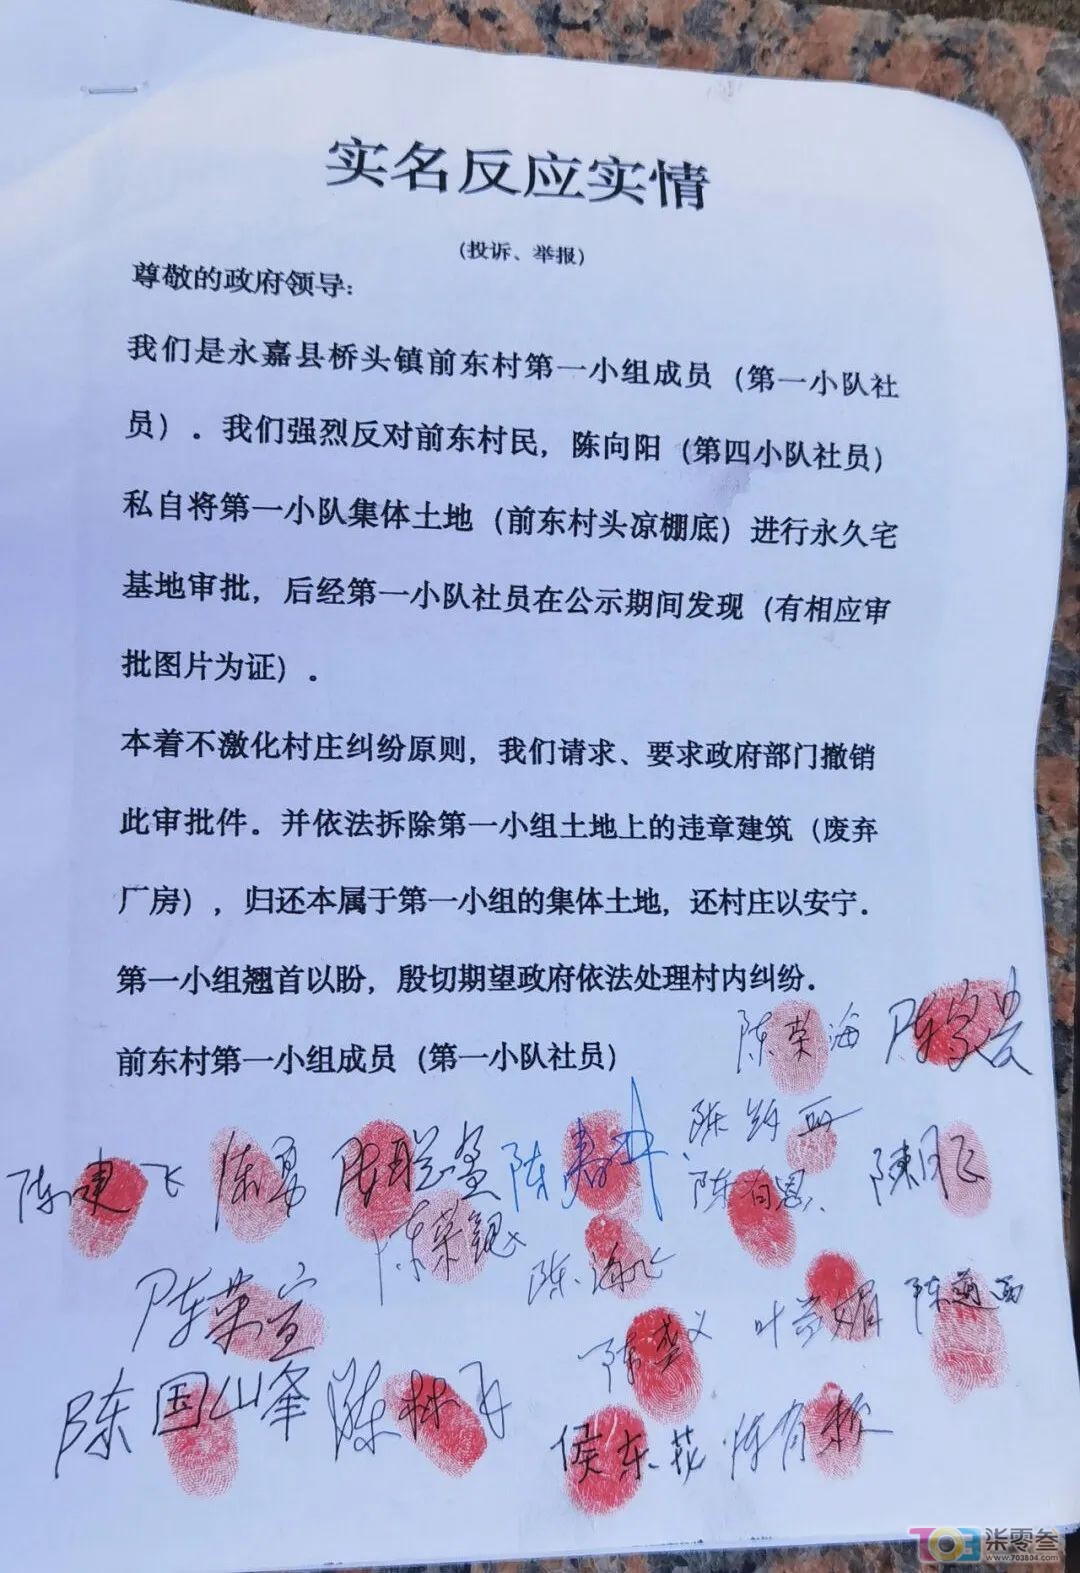 实名反应实情
(投诉、举报)
尊敬的政府领导:
我们是永嘉县桥头镇前东村第一小组成员（第一小队社
员）. 我们强烈反对前东村民, 陈向阳（第四小队社员）
私自将第一小队集体土地（前东村头凉棚底）进行永久宅
基地审批, 后经第一小队社员在公示期间发现（有相应审
批图片为证）.
本着不激化村庄纠纷原则, 我们请求、要求政府部门撤销
此审批件。并依法拆除第一小组土地上的违章建筑（废弃
厂房）, 归还本属于第一小组的集体土地, 还村庄以安宁.
第一小组翘首以盼, 殷切期望政府依法处理村内纠纷.
前东村第一小组成员（第一小队社员）
陈荣海
陈建飞 陈勇 陈
陈有恩 陈月飞
陈荣
陈荣宣
叶 媚
陈国山峯 陈林
侯东花 陈有
703 柒零叁
www.703804.com